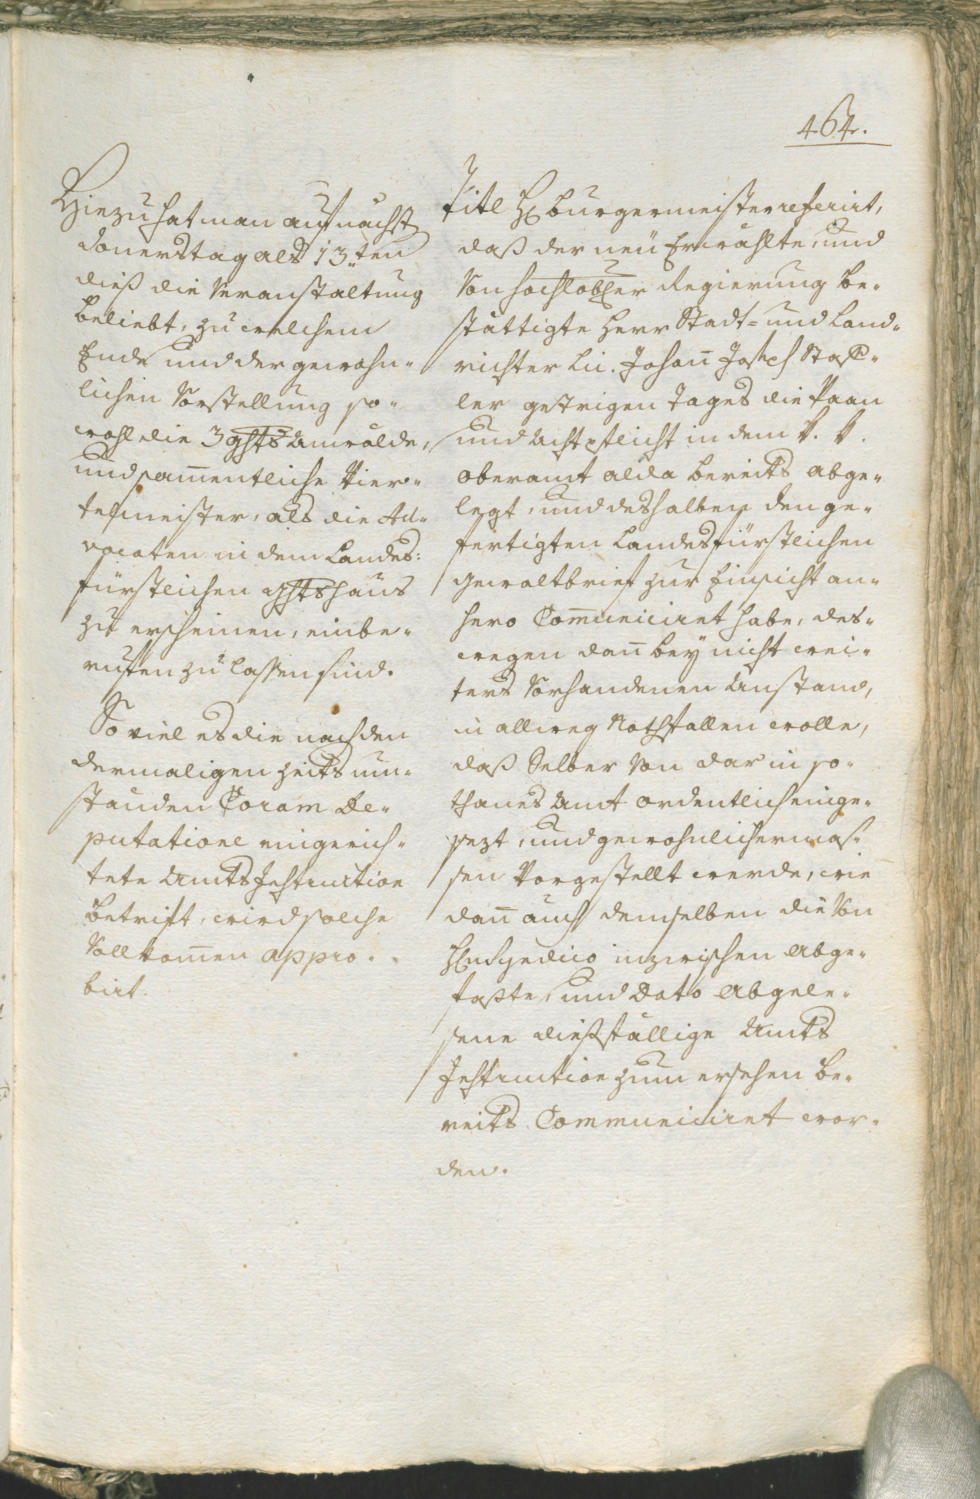 464.
Hiezu hat man auf nächst
donerstag als 13.ten
dieß die Veranstaltung
beliebt, zu welchem
Ende und der gewohn-
lichen Vorstellung so-
wohl die 3 ghts Anwälde,
und sam̅entliche Vier-
telmeister, als die Ad-
vocaten in dem Landes:
fürstlichen ghtshaus
zu erscheinen, einbe-
ruffen zu lassen sind.
So viel es die nach den
dermaligen Zeits um-
ständen Coram De-
putatione eingerich-
tete Amts Instruction
betrift, wird solche
Vollkom̅en appro-
birt.
Titl H: Burgermeister referirt,
daß der neü Erwählte, und
Von hochlobl:er Regierung be-
stättigte Herr Stadt- und Land-
richter Lic. Johan̅ Joseph Staf-
ler gestrigen Tages die Paan
und Achtpflicht in dem V. Ö.
oberamt alda bereits abge-
legt, und deshalben den ge-
fertigten Landesfürstlichen
Gewaltbrief zur Einsicht an-
hero Com̅uniciret habe, des-
wegen dan̅ bey nicht wei-
ters Vorhandenen Anstand,
in allweg Nothfallen wolle,
daß Selber Von dar in so-
thanes Amt ordentlich einge-
sezt, und gewohnlichermas-
sen Vorgestellt werde, wie
dan̅ auch demselben die Von
H: Syndico inzwischen Abge-
faßte, und Dato Abgele-
sene dießfällige Amts
Instruction zum ersehen be-
reits Communiciret wor-
den.